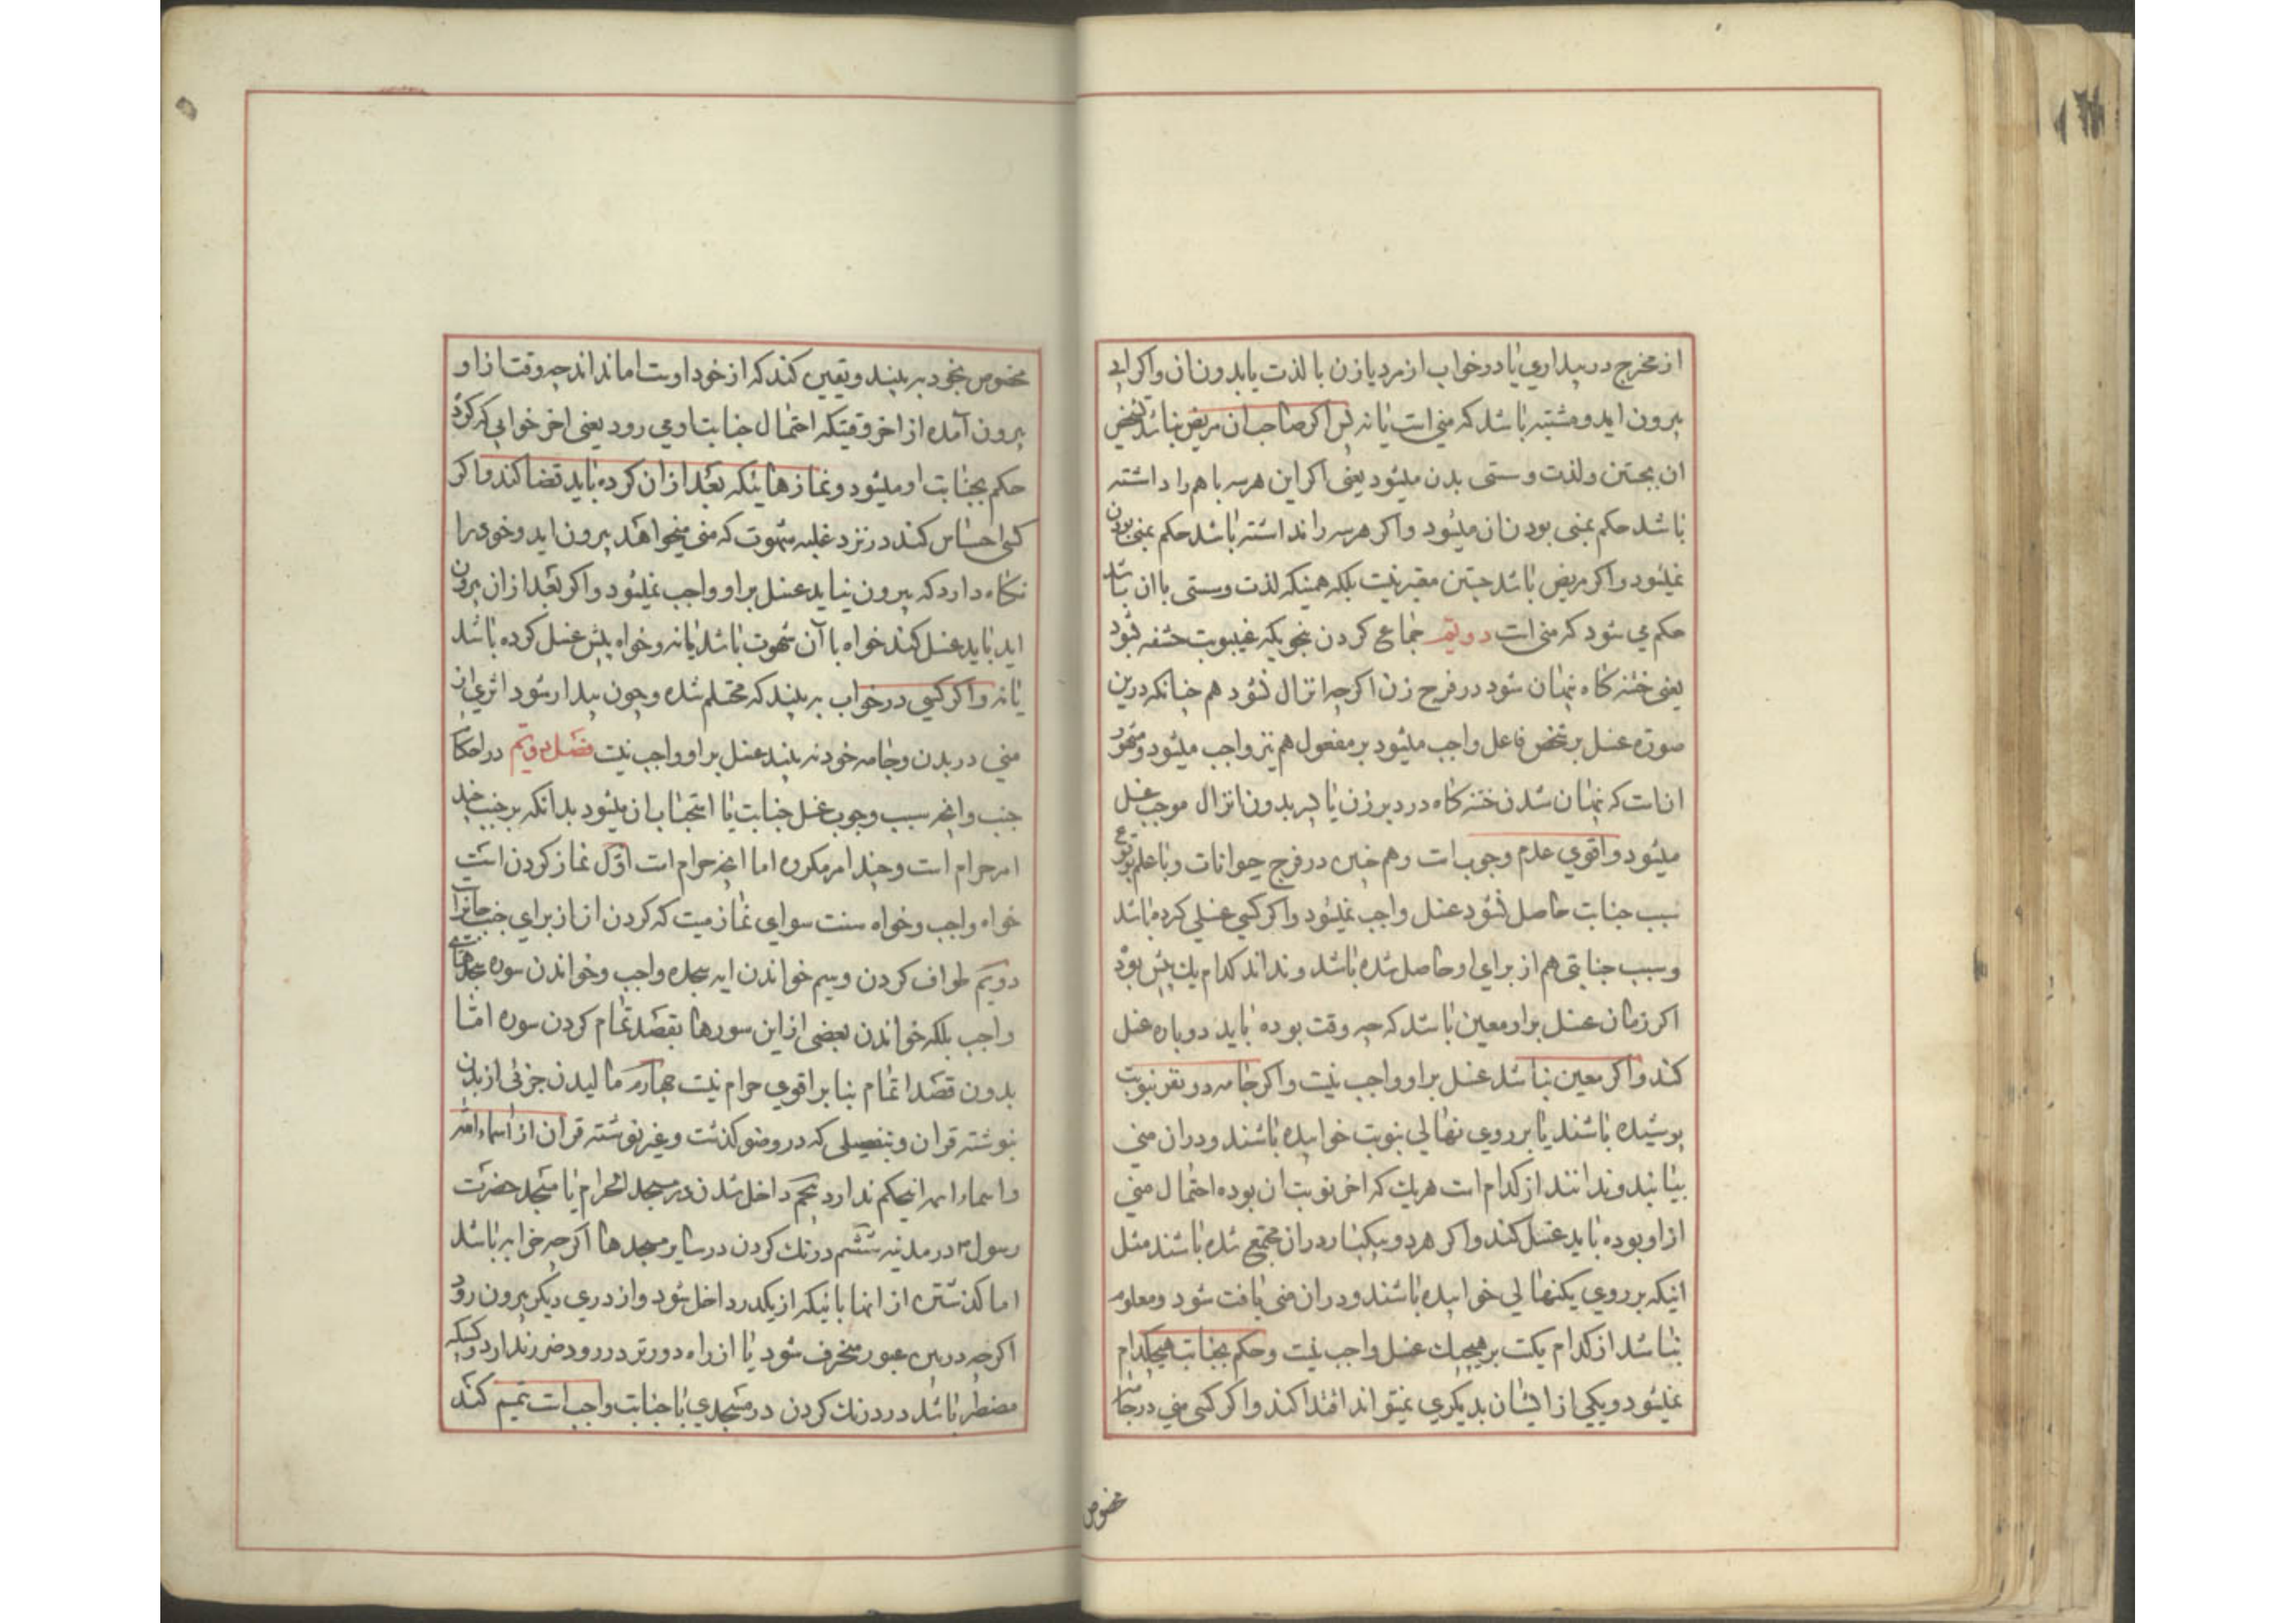 از مخرج در بیداری یا در خواب از مرد یا زن با لذت یا بدون ان و اکر ابی
بیرون اید و مشتبه باشد که منی است یا نه پس اکر صاحب ان مریض نباشد تشخیص
ان بجستن و لذت و سستی بدن میشود یعنی اکر این هر سه با هم را داشته
باشد حکم بمنی بودن ان میشود و اکر هر سه را نداشته باشد حکم بمنی بودن
نمیشود و اکر مریض باشد جستن معتبر نیست بلکه همینکه لذت و سستی با ان باشد
حکم می شود که منی است دویّم جماع کردن بنحویکه غیبوبت حشفه شود
یعنی ختنه کاه پنهان شود در فرج زن اکرچه انزال نشود هم چنانکه درین
صورة غسل بر شخص فاعل واجب میشود بر مفعول هم نیز واجب میشود و مشهور
انست که پنهان شدن ختنه کاه در دبر زن یا پسر بدون انزال موجب غسل
میشود و اقوی عدم وجوبست و هم چنین در فرج حیوانات و با علم بوقوع
سبب جنابت حاصل نشود غسل واجب نمیشود و اکر کسی غسلی کرده باشد
و سبب جنابتی هم از برای او حاصل شده باشد و نداند کدام یك پیش بوده
اکر زمان غسل براو معین باشد که چه وقت بوده باید دوباره غسل
کند و اکر معین نباشد غسل براو واجب نیست و اکر جامه دو نفر بنوبت
پوشیده باشند یا بر روی نهالی بنوبت خوابیده باشند و در ان منی
بیابند و ندانند از کدام است هریك که اخر نوبت ان بوده احتمال منی
از او بوده باید غسل کند و اکر هر دو بیکبار در ان مجتمع شده باشند مثل
اینکه بر روی یکنهالی خوابیده باشند و در ان منی یافت شود و معلوم
نباشد از کدام یکست بر هیچیك غسل واجب نیست و حکم بجنابت هیچکدام
نمیشود و یکی از ایشان بدیکری نمیتواند اقتدا کند و اکر کسی منی در جامه
مخصوص
مخصوص بخود به بیند و یقین کند که از خود اوست اما نداند چه وقت از او
بیرون آمده از اخر وقتیکه احتمال جنابت او می رود یعنی اخر خوابی که کرده
حکم بجنابت او میشود و نمازهائیکه بعد از ان کرده باید قضا کند و اکر
کسی احساس کند در نزد غلبه شهوت که منی میخواهد بیرون اید و خود را
نکاه دارد که بیرون نیاید غسل براو واجب نمیشود و اکر بعد از ان بیرون
اید باید غسل کند خواه با آن شهوت باشد یا نه و خواه پیش غسل کرده باشد
یا نه و اکر کسی در خواب به بیند که محتلم شده و چون بیدار شود اثری از
منی در بدن و جامه خود نه بیند غسل براو واجب نیست فصل دویّم در احکام
جنب و انچه سبب وجوب غسل جنابت یا استحباب ان میشود بدانکه بر جنب چند
امر حرام است و چند امر مکروه اما انچه حرام است اوّل نماز کردن است
خواه واجب و خواه سنت سوای نماز میت که کردن ان از برای جنب جایز است
دویّم طواف کردن و سیم خواندن ایه سجده واجب و خواندن سوره سجدهای
واجب بلکه خواندن بعضی از این سورها بقصد تمام کردن سوره امّا
بدون قصد اتمام بنا بر اقوی حرام نیست چهارم مالیدن جزئی از بدن
بنوشته قران و بتفصیلی که در وضو کذشت و غیر نوشته قران از اسماء الله
و اسماء ائمه اینحکم ندارد پنجم داخل شدن در مسجد الحرام یا مسجد حضرت
رسول م در مدنیه ششم درنك کردن در سایر مسجدها اکر چه خرابه باشد
اما کذشتن از انها باینکه از یکدر داخل شود و از دری دیکر بیرون رود
اکر چه در بین عبور منحرف شود یا از راه دورتر در رود ضرر ندارد و کسیکه
مضطر باشد در درنك کردن در مسجدی با جنابت واجب است تیمم کند